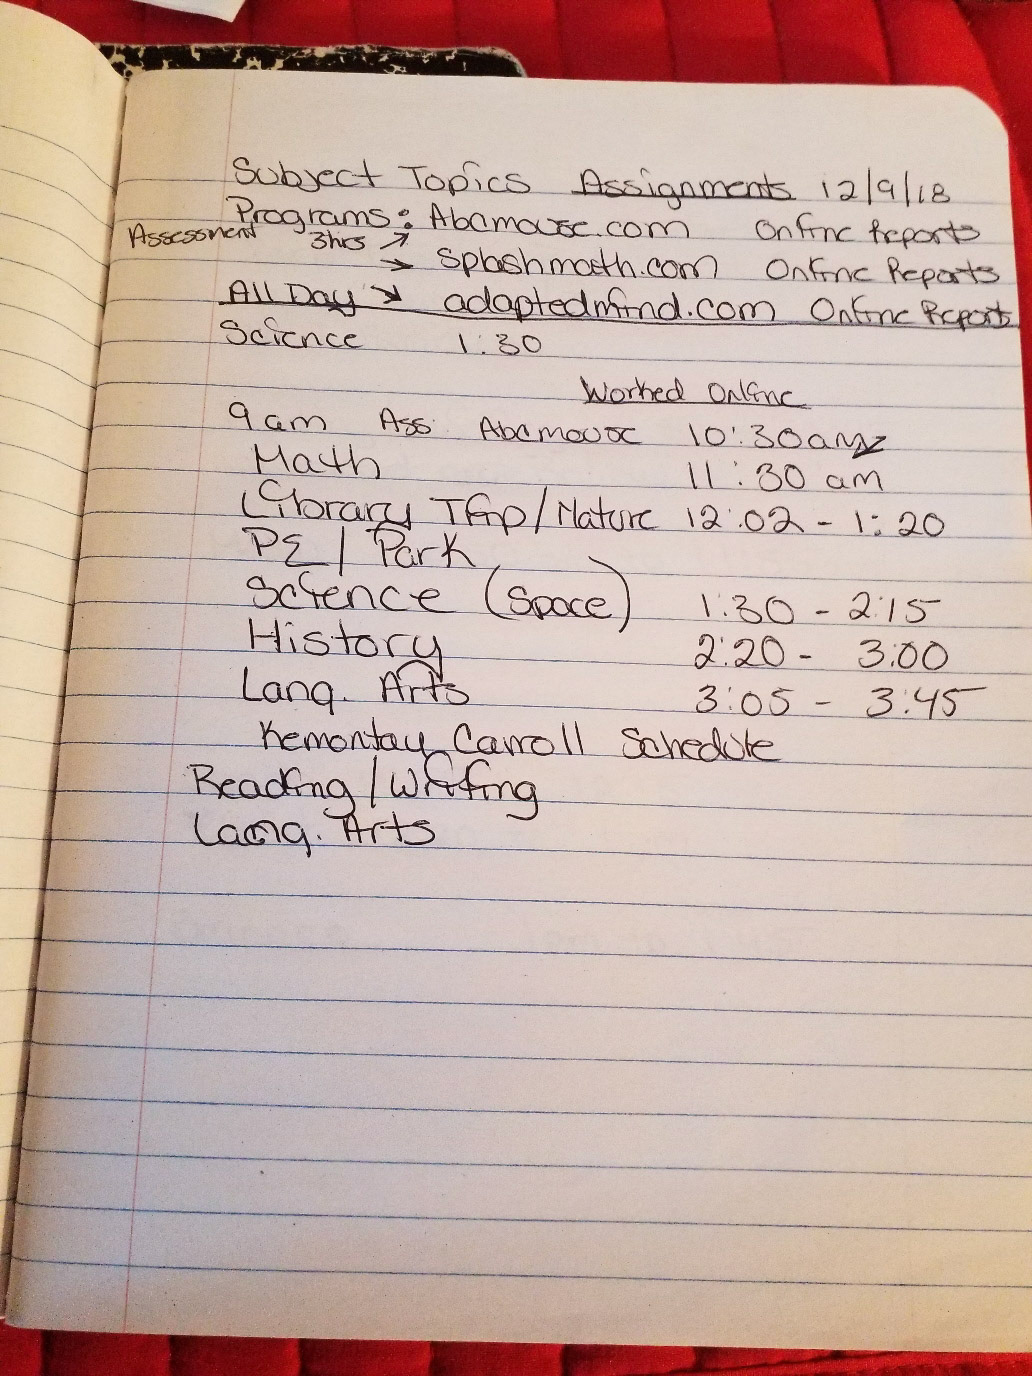 Subject Topics Assignments 12/9/18
Programs: Abcmouse.com Online Reports
Assessment 3hrs ↗
→ splashmath.com Online Reports
All Day ↘ adaptedmind.com Online Report
Science 1:30
Worked Online
9am Ass. Abcmouse 10:30am
Math 11:30 am
Library Trip/Nature 12:02 - 1:20
PE / Park
Science (Space) 1:30 - 2:15
History 2:20 - 3:00
Lang. Arts 3:05 - 3:45
Kemontay Carroll Schedule
Reading / Writing
Lang. Arts